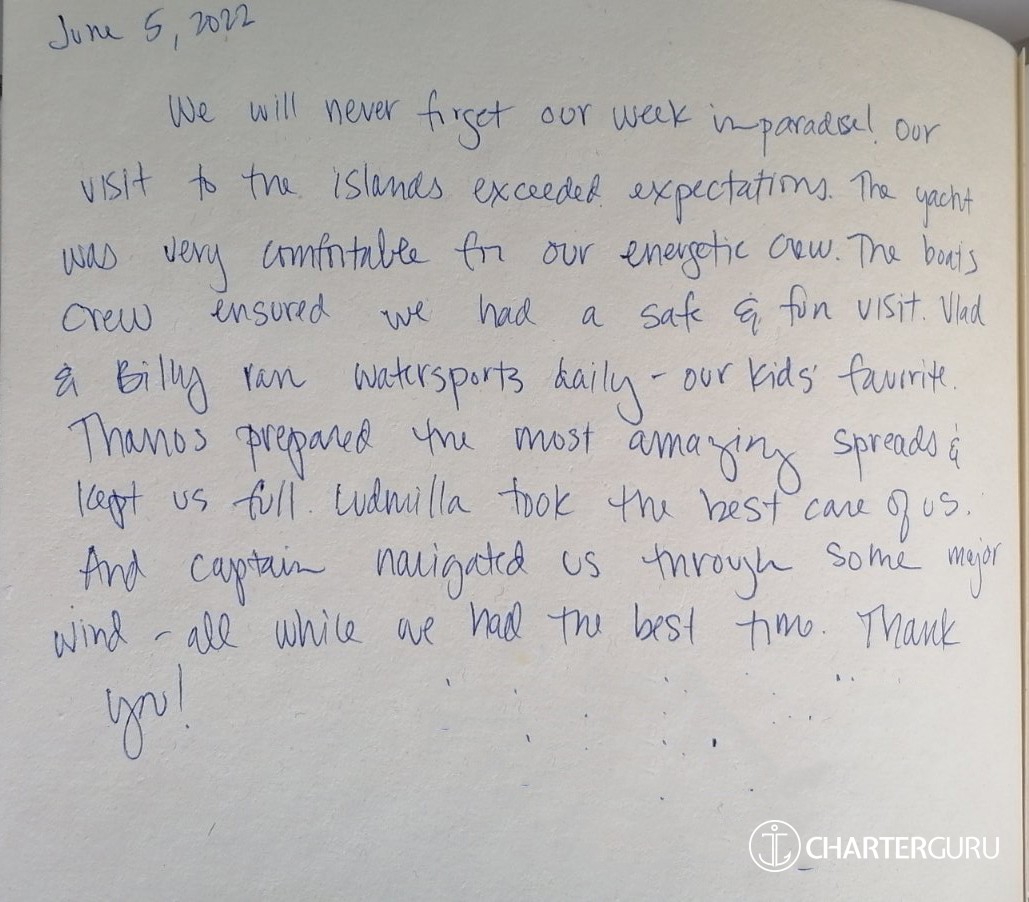 June 5, 2022
We will never forget our week in paradise! Our
visit to the islands exceeded expectations. The yacht
was very comfortable for our energetic crew. The boats
crew ensured we had a safe & fun visit. Vlad
& Billy ran watersports daily - our kids' favorite.
Thanos prepared the most amazing spreads &
kept us full. Ludmilla took the best care of us.
And captain navigated us through some major
wind - all while we had the best time. Thank
you!
CHARTERGURU